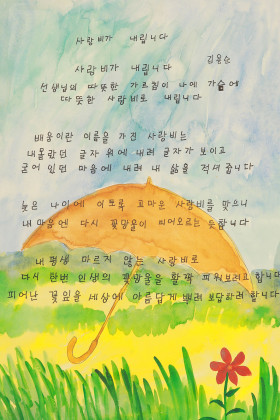 사랑비가 내립니다
김용순
사랑비가 내립니다
선생님의 따뜻한 가르침이 나에 가슴에
따뜻한 사랑비로 내립니다
배움이란 이름을 가진 사랑비는
내몰랐던 글자 위에 내려 글자가 보이고
굳어 있던 마음에 내려 내 삶을 적셔줍니다
늦은 나이에 이토록 고마운 사랑비를 맞으니
내 마음엔 다시 꽃망울이 피어오르는 듯합니다
내 평생 마르지 않는 사랑비로
다시 한번 인생의 꽃망울을 활짝 피워보려고 합니다
피어난 꽃잎을 세상에 아름답게 뿌려 보답하려 합니다